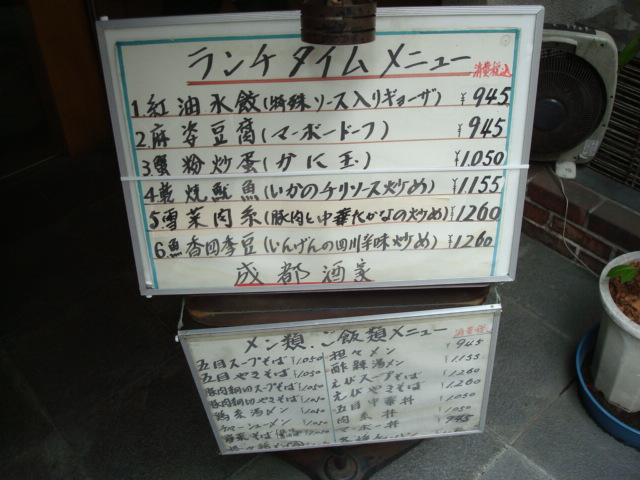 ランチタイムメニュー 消費税込
1.紅油水餃(特殊ソース入りギョーザ) ¥945
2.麻婆豆腐(マーボードーフ) ¥945
3.蟹粉炒蛋(かに玉) ¥1.050
4.乾焼魷魚(いかのチリソース炒め) ¥1155
5.雪菜肉糸(豚肉と中華たかなの炒め) ¥1260
6.魚香四季豆(いんげんの四川辛味炒め) ¥1260
成都酒家
メン類.ご飯類メニュー 消費税込
五目スープそば ¥1,050
五目やきそば ¥1,050
豚肉細切スープそば ¥1,050
豚肉細切やきそば ¥1,050
鶏糸湯メン ¥1,050
チャーシューメン ¥1,050
野菜そば
担々メン ¥945
酢辣湯メン ¥1155
えびスープそば ¥1260
えびやきそば ¥1260
五目中華丼 ¥1,050
肉糸丼 1,050
マーボー丼 945